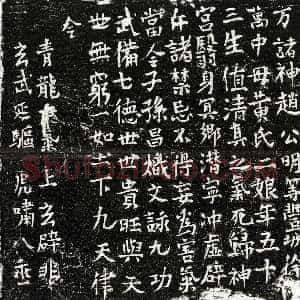 万諸神趙公明等豐城
中毋黃氏娘年五十
三生值清真之氣死歸神
宮翳身冥鄉潛寧冲虛辟
斥諸禁忌不得妄為害氣
當令子孫昌熾文詠九功
武備七德世世貴旺與天
無窮一如下九天律
令
青龍氣上玄辟非
玄武延軀虎嘯八垂